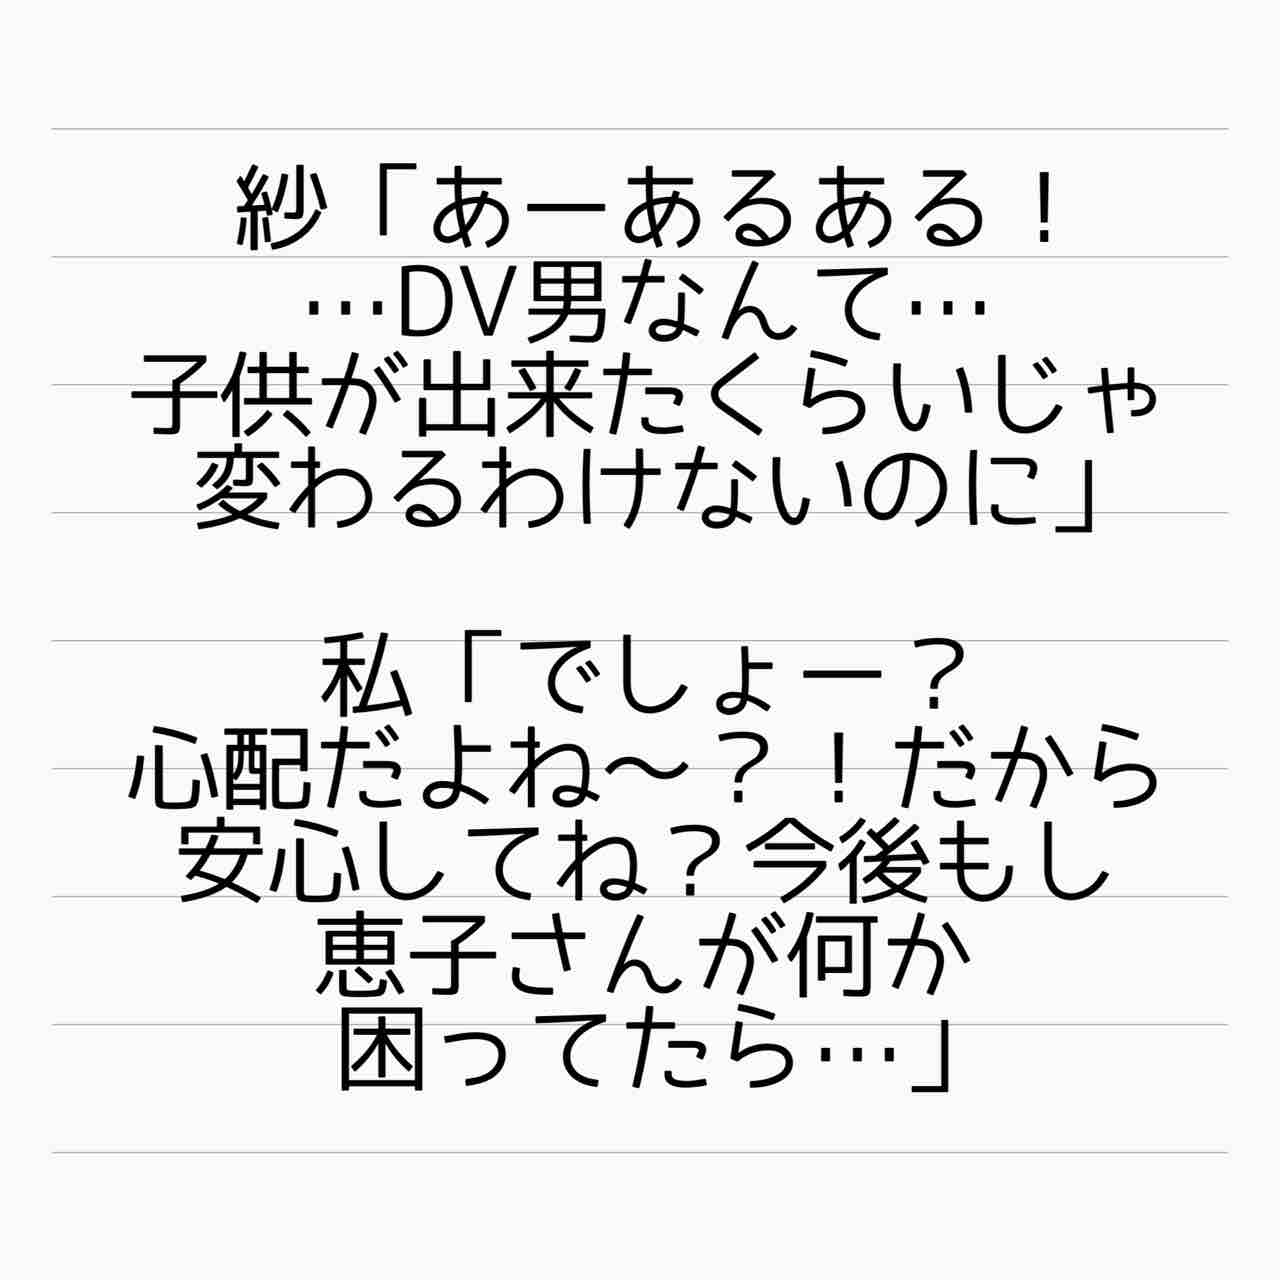 紗「あーあるある！
…DV男なんて…
子供が出来たくらいじゃ
変わるわけないのに」
私「でしょー？
心配だよね〜？！だから
安心してね？今後もし
恵子さんが何か
困ってたら…」